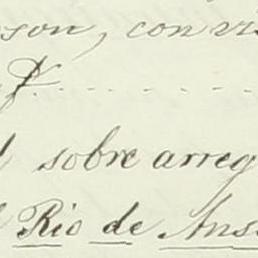 son, con vis
sobre arreg
Rio de Ans